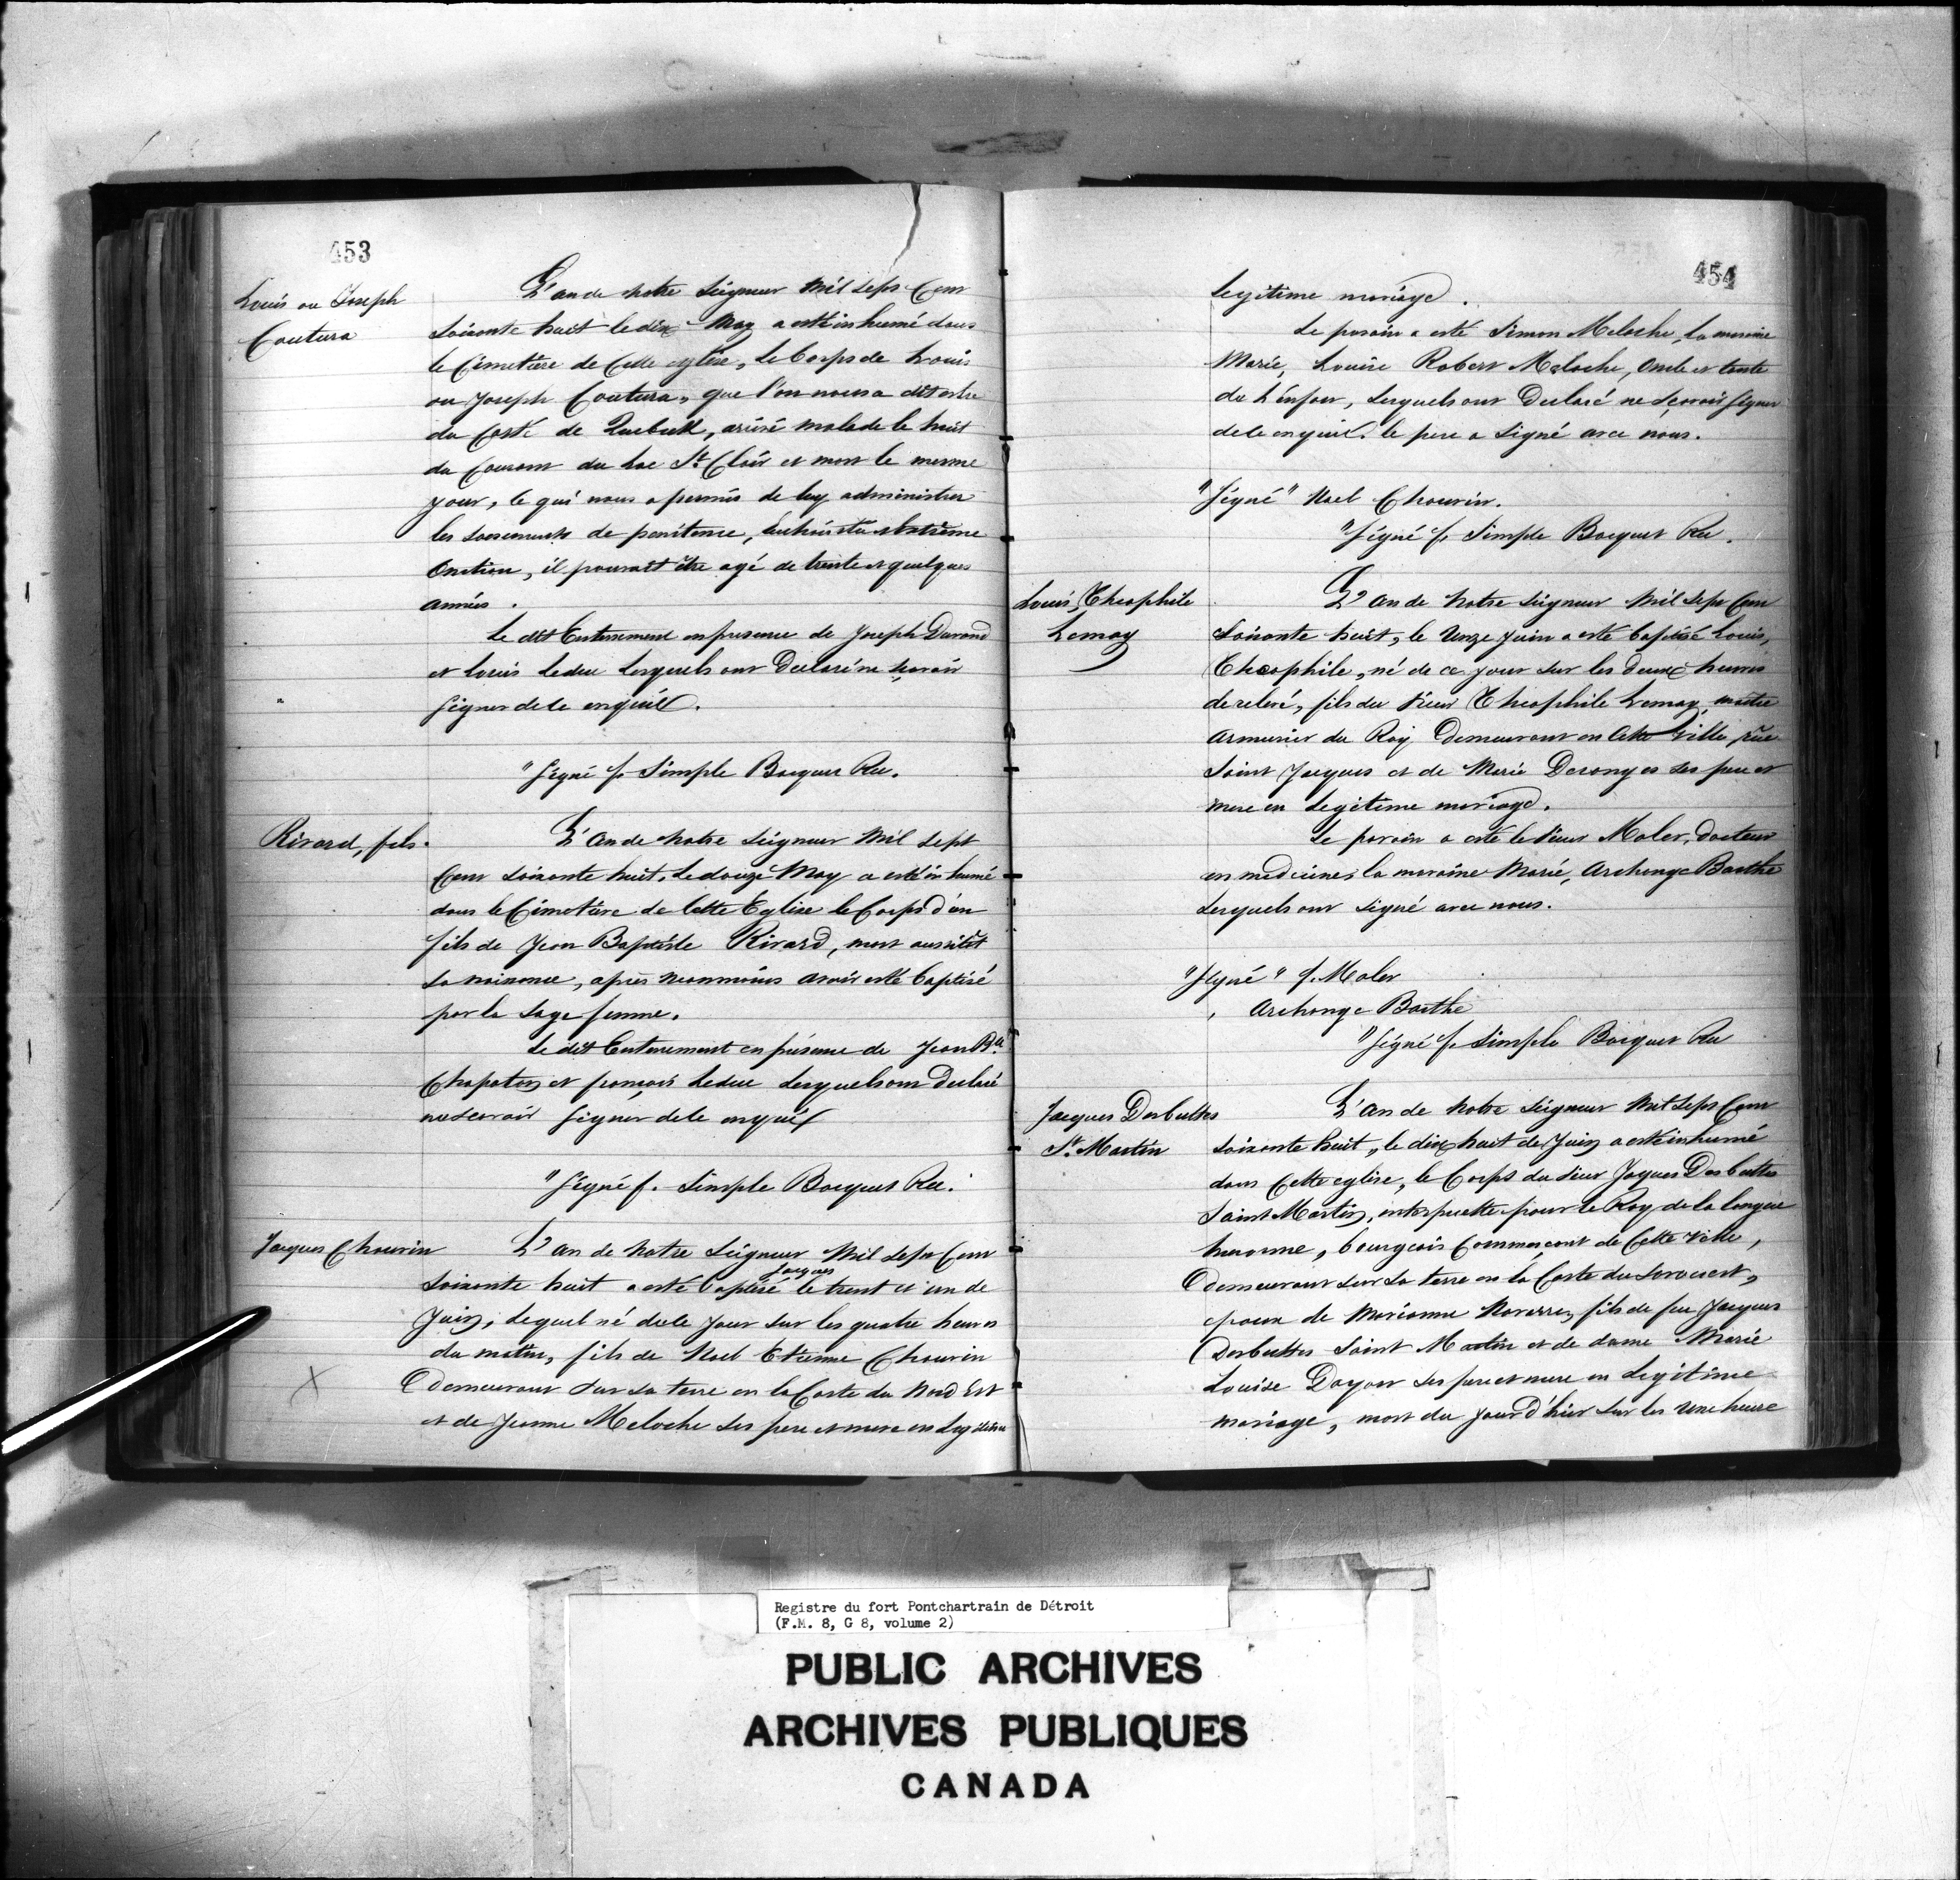 453
Louis ou Joseph
Coutura
L'an de notre Seigneur Mil Sept Cent
soixante huit le dix May a esté inhumé dans
le Cimetière de Cette eglise, le Corps de Louis
ou Joseph Coutura, que l'on nous a dit estre
du Costé de Quebeck, arivé malade le huit
du Courant du Lac St. Clair et mort le mesme
jour, ce qui nous a permis de luy administrer
les sacrements de penitence,
Onction, il pouroit être agé de trente et quelques
années.
Le dit Enterrement en presence de Joseph Durand
et Louis Leduc lesquels ont Declaré ne scavoir
signer de ce enquil.
"Signé f. Simple Bocquet Rec.
Rivard, fils.
L'an de notre Seigneur Mil Sept
Cent soixante huit, le douze May a esté inhumé
dans le Cimetière de Cette Eglise le Corps d'un
fils de Jean Baptiste Rivard, mort aussitôt
sa naissance, après neanmoins avoir esté baptisé
par la sage femme.
Le dit Enterrement en présence de Jean Bte
Chapoton et françois Leduc lesquels ont Declaré
ne scavoir signer de ce enquil
"Signé f. Simple Bocquet Rec.
Jacques Chauvin
L'an de Notre Seigneur Mil Sept Cent
Jacques
soixante huit a esté baptisé le trent et un de
Juin, lequel né de ce jour sur les quatre heures
du matin, fils de Noel Etienne Chauvin
Demeurant sur sa terre en la Coste du Nord Est
et de Jeanne Meloche ses pere et mere en legitime
454
legitime mariage.
Le parain a esté Simon Meloche, la maraine
Marie, Louise Robert Meloche, Oncle et tante
de l'enfant, lesquels ont Declaré ne sçavoir signer
de ce enquil. le pere a signé avec nous.
"Signé" Noel Chauvin.
"Signé f. Simple Bocquet Rec.
Louis, Theophile
Lemay
L'an de Notre Seigneur Mil Sept Cent
soixante huit, le Unze Juin a esté baptisé Louis,
Theophile, né de ce jour sur les deux heures
de relevé, fils du sieur Theophile Lemay, maitre
armurier du Roy Demeurant en Cette Ville rüe
Saint Jacques et de Marie Desonges ses pere et
mere en legitime mariage.
Le parain a esté le sieur Maler, Docteur
en medicine, la maraine Marie, Archange Barthe
lesquels ont signé avec nous.
"Signé" J. Maler
Archange Barthe
"Signé f. Simple Bocquet Rec
Jacques Desbuttes
St. Martin
L'an de Notre Seigneur Mil Sept Cent
soixante huit, le dix huit de Juin a esté inhumé
dans Cette eglise, le Corps du sieur Jaques Desbuttes
Saint Martin, interprette pour le Roy de la langue
huronne, bourgeois Commerçant de Cette ville,
Demeurant sur sa terre en la Coste du Sorouest,
epoux de Marianne Navarre, fils de feu Jacques
Desbuttes Saint Martin et de dame Marie
Louise Dayon ses pere et mere en Legitime
mariage, mort du jour d'hier sur les Une heure
Registre du fort Pontchartrain de Détroit
(F.M. 8, G 8, volume 2)
PUBLIC ARCHIVES
ARCHIVES PUBLIQUES
CANADA